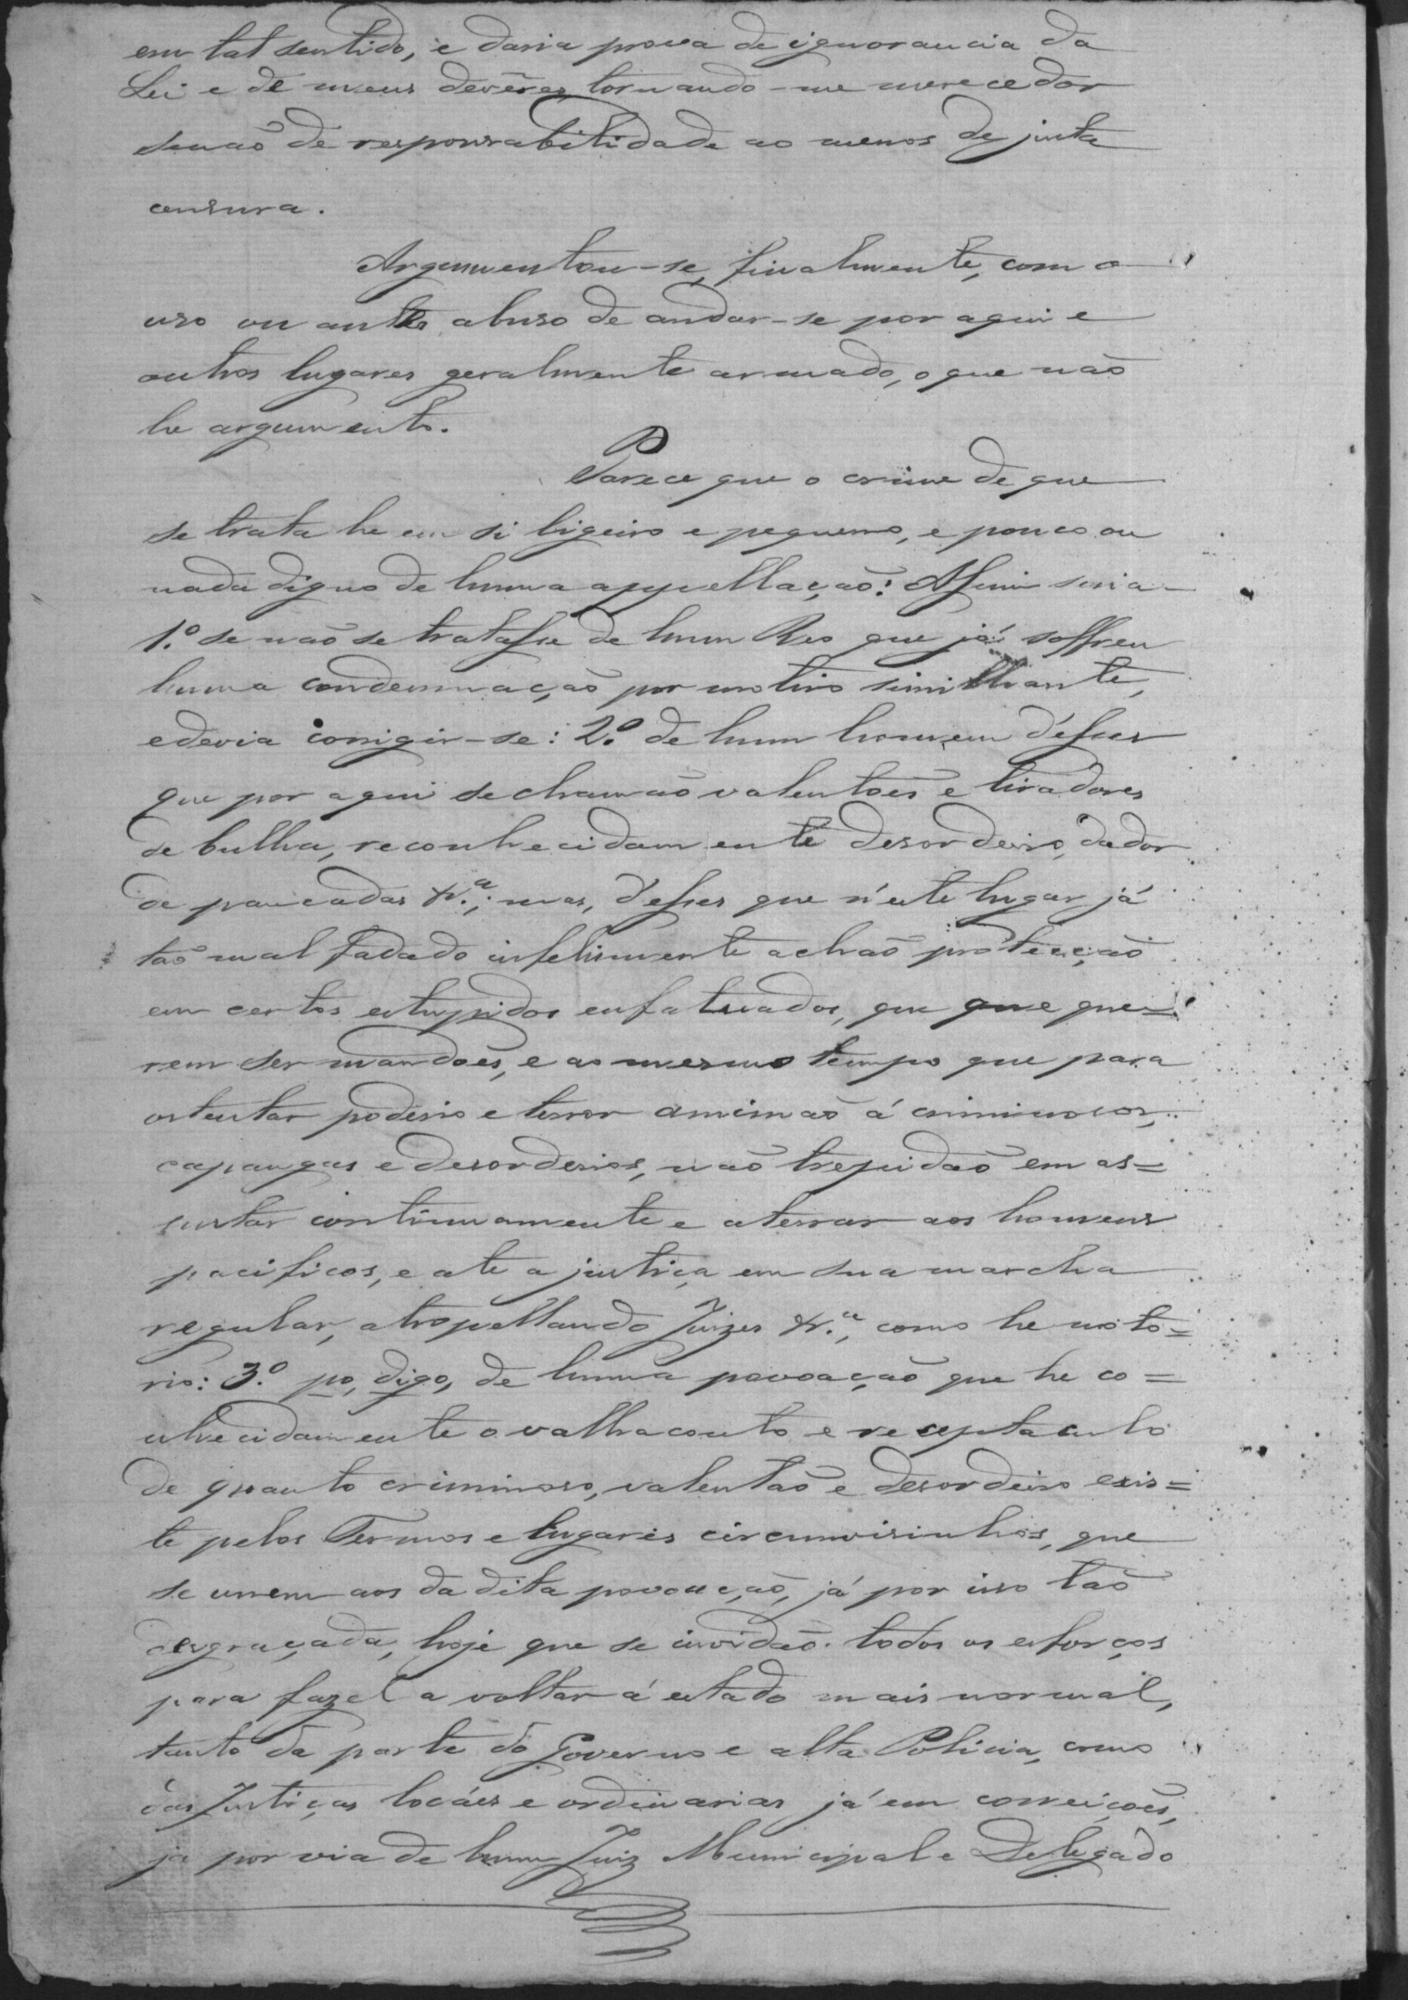 em tal sentido, e daria prova de ignorancia da
Lei e de meus devêres, tornando-me merecedor
senão de responsabilidade ao menos de justa
censura.
Argumentou-se, finalmente, com o
uso ou antes abuso de andar-se por aqui e
outros lugares geralmente armado, o que não
he argumento.
Parece que o crime de que
se trata he em si ligeiro e pequeno, e pouco ou
nada digno de huma appellação: Assim seria
1.º se não se tratasse de hum Reo que já soffreu
huma condemnação por motivo similhante,
e devia corrigir-se: 2.º de hum homem d'esses
que por aqui se chamão valentões e tiradores
de bulha, reconhecidamente desordeiro, dador
de pancadas &.ª; mas, d'esses que n'este lugar já
tão mal fadado infelismente achão protecção
em certos estupidos enfatuados, que que que=
rem ser mandões, e ao mesmo tempo que para
ostentar poderio e terror animão á criminosos,
capangas e desorderios, não trepidão em as=
sustar continuamente e aterrar aos homens
pacificos, e até a justiça em sua marcha
regular, atropellando Juizes &.ª, como he noto=
rio: 3.º po, digo, de huma povoação que he co=
nhecidamente o valhacouto e receptaculo
de quanto criminoso, valentão e desordeiro exis=
te pelos Termos e lugares circumvisinhos, que
se unem aos da dita povoação, já por isso tão
desgraçada, hoje que se invidão todos os esforços
para fazel a voltar á estado mais normal,
tanto da parte do Governo e alta Policia, como
das Justiças locáes e ordinarias já em correições,
já por via de hum Juiz Municipal e Delegado